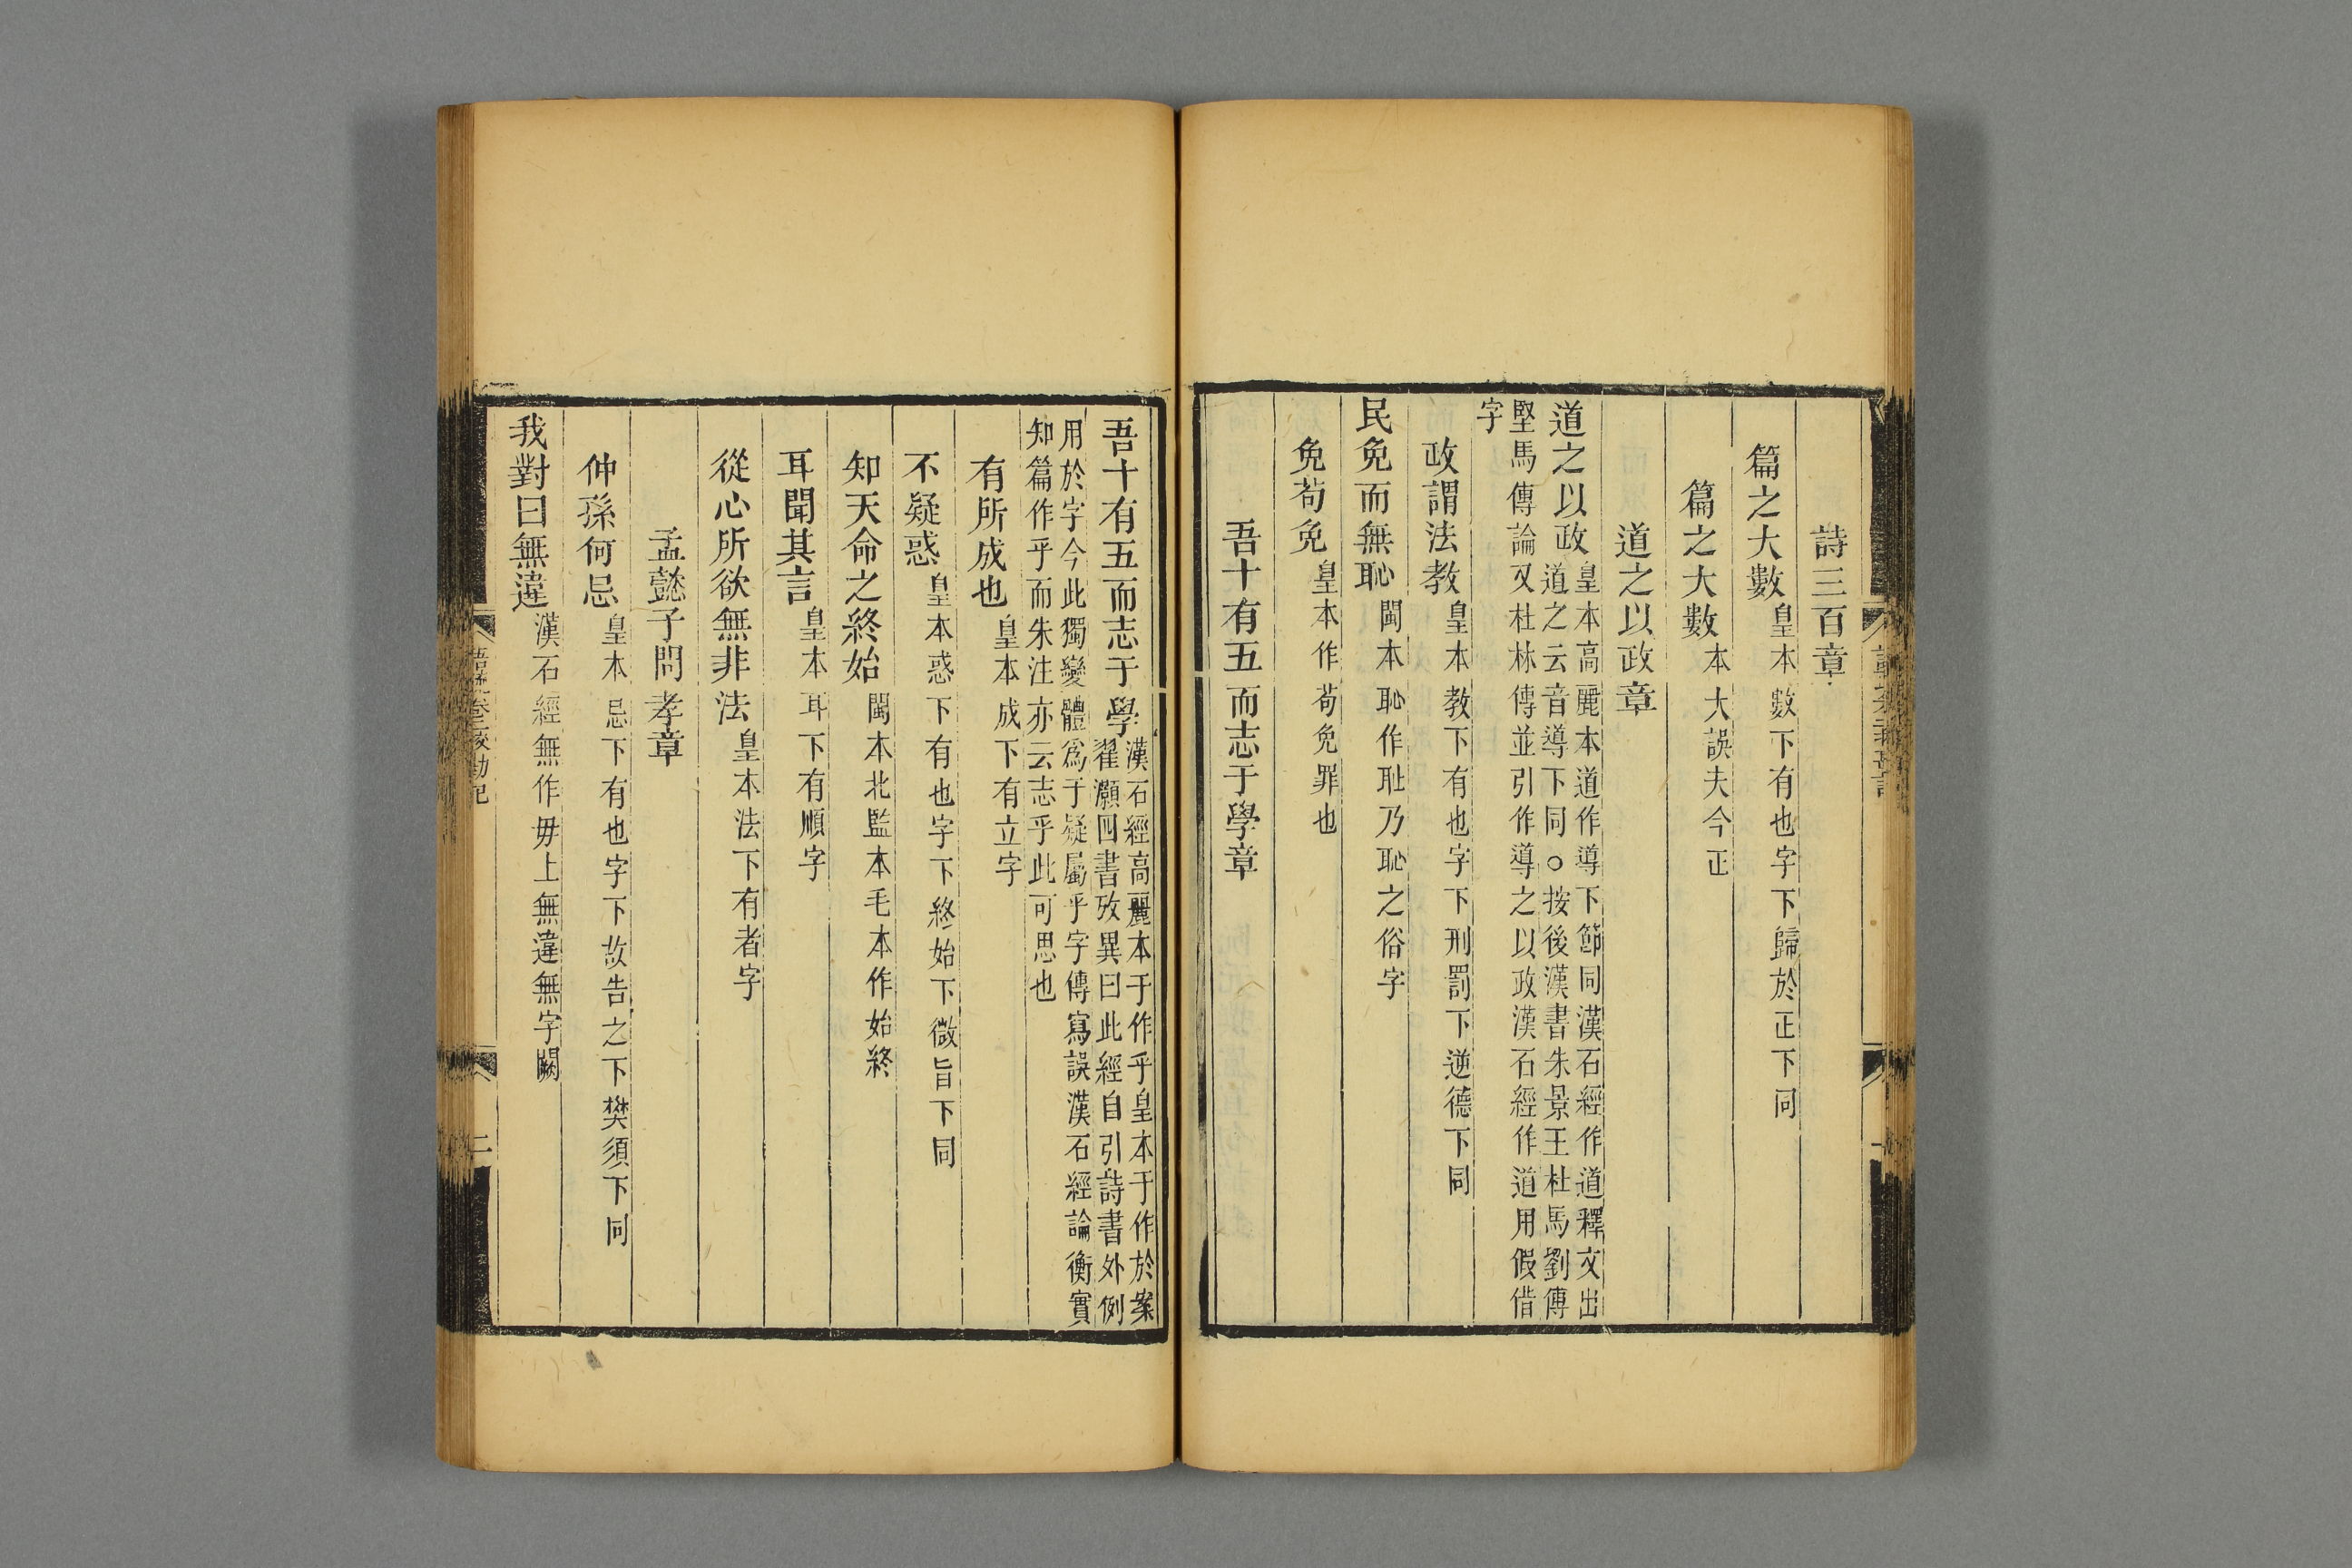 詩三百章
篇之大數皇本數下有也字下歸於正下同
篇之大數本大誤夫今正
道之以政章
道之以政皇本高麗本道作導下節同漢石經作道釋文出
道之云音導下同○按後漢書朱景王杜馬劉傅
堅馬傳論又杜林傳並引作導之以政漢石經作道用假借
字
政謂法教皇本教下有也字下刑罰下逆德下同
民免而無恥閩本恥作耻乃恥之俗字
免苟免皇本作苟免罪也
吾十有五而志于學章
吾十有五而志于學漢石經高麗本于作乎皇本于作於案
翟灝四書攷異曰此經自引詩書外例
用於字今此獨變體爲于疑屬乎字傳寫誤漢石經論衡實
知篇作乎而朱注亦云志乎此可思也
有所成也皇本成下有立字
不疑惑皇本惑下有也字下終始下微旨下同
知天命之終始閩本北監本毛本作始終
耳聞其言皇本耳下有順字
從心所欲無非法皇本法下有者字
孟懿子問孝章
仲孫何忌皇本忌下有也字下故告之下樊須下同
我對曰無違漢石經無作毋上無違無字闕
二